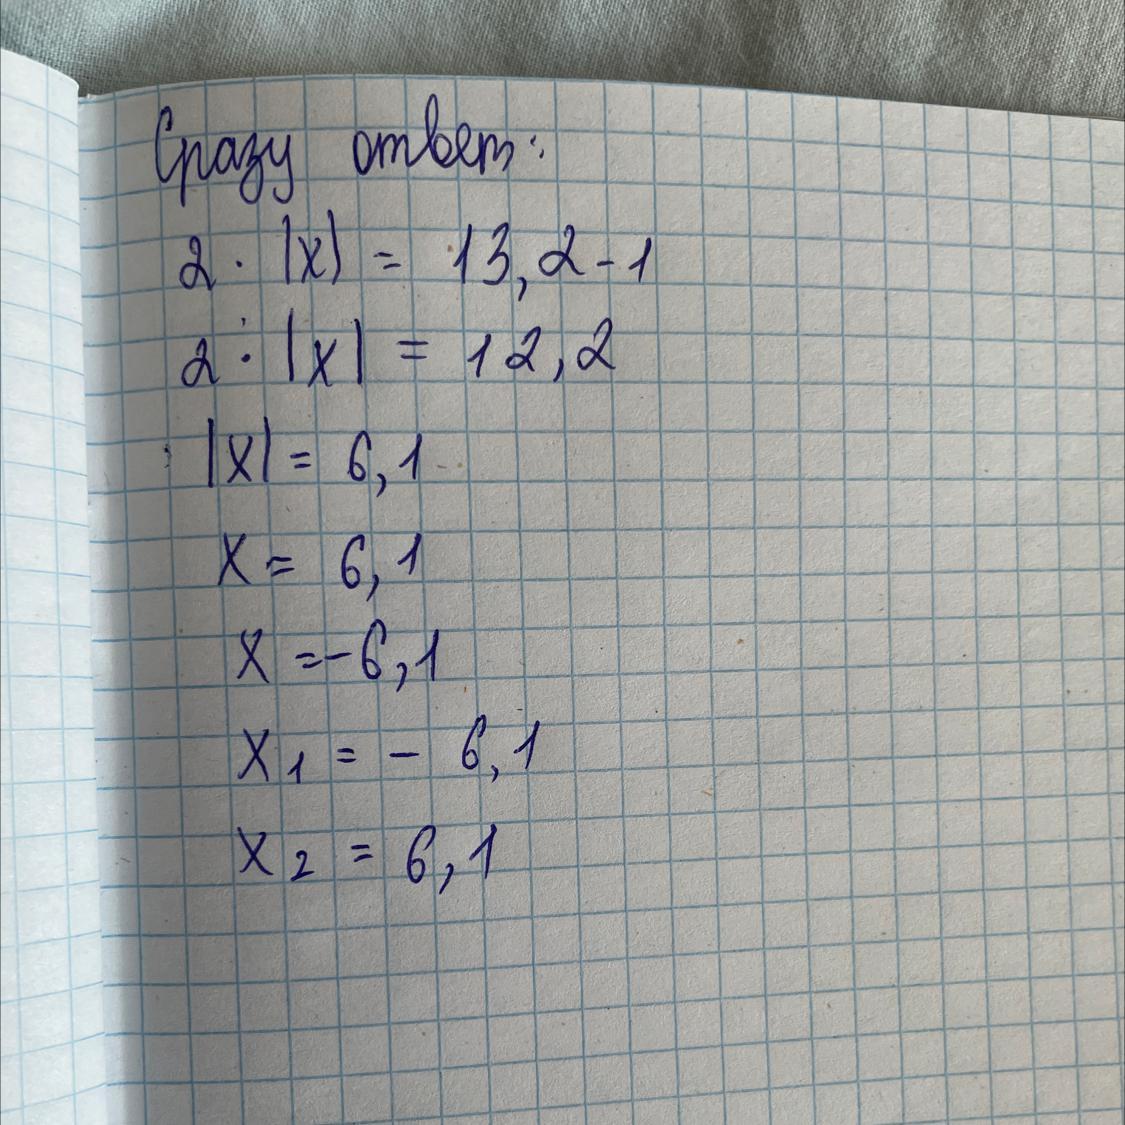 Сразу ответ:
2 · |x| = 13,2 - 1
2 · |x| = 12,2
|x| = 6,1
x = 6,1
x = -6,1
x1 = - 6,1
x2 = 6,1